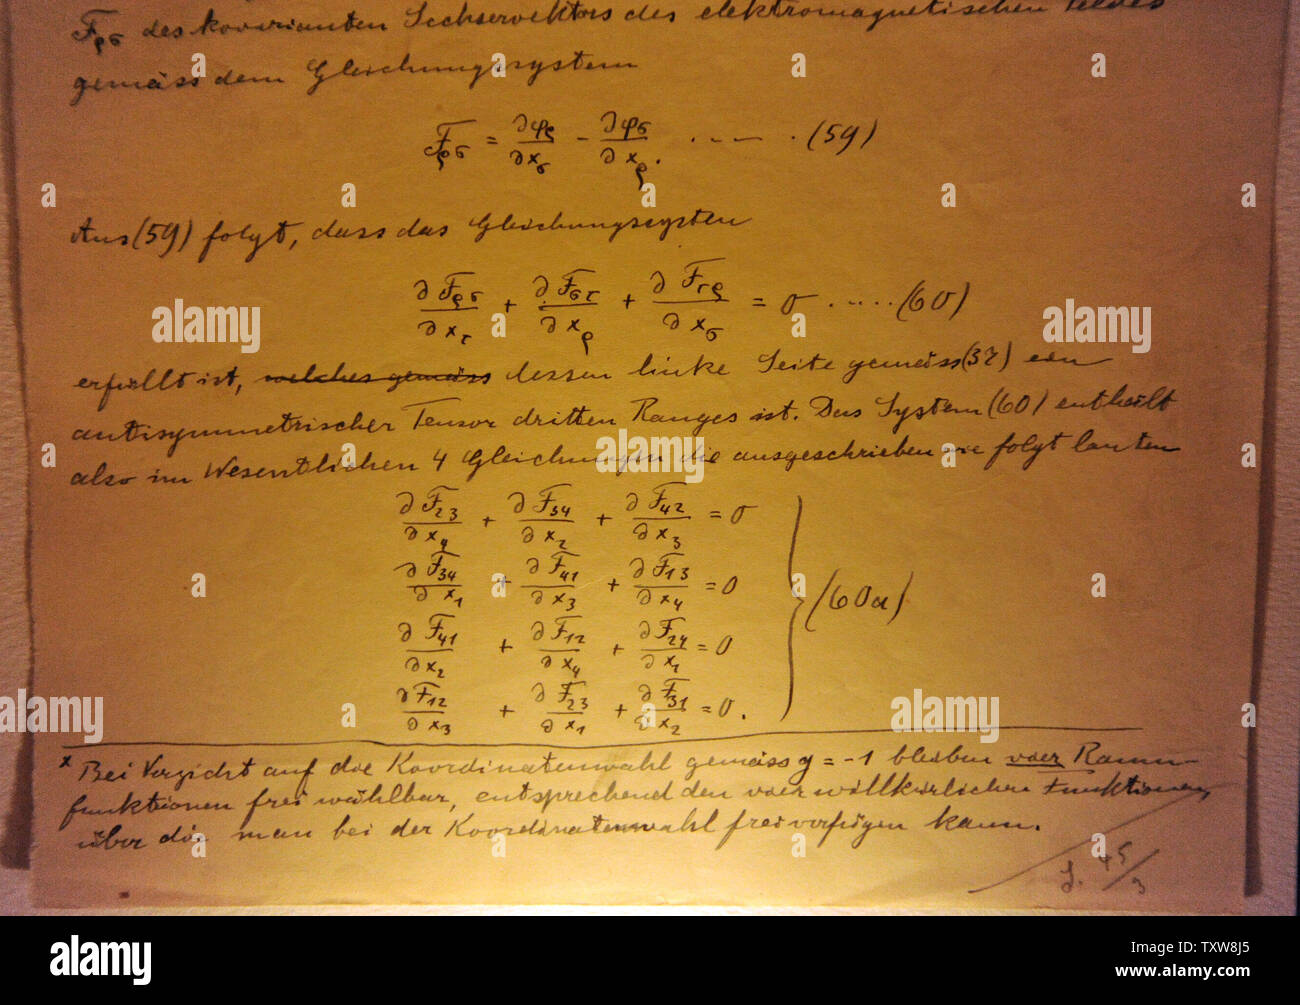 F_ρσ des kovarianten Sechservektors des elektromagnetischen Feldes
gemäss dem Gleichungssystem
F_ρσ = ∂φ_ρ/∂x_σ − ∂φ_σ/∂x_ρ. . — — . (59)
Aus (59) folgt, dass das Gleichungssystem
∂F_ρσ/∂x_τ + ∂F_στ/∂x_ρ + ∂F_τρ/∂x_σ = 0 . .... (60)
erfüllt ist, welches gemäss dessen linke Seite gemäss (37) ein
antisymmetrischer Tensor dritten Ranges ist. Das System (60) enthält
also im Wesentlichen 4 Gleichungen die ausgeschrieben wie folgt lauten
∂F_23/∂x_4 + ∂F_34/∂x_2 + ∂F_42/∂x_3 = 0
∂F_34/∂x_1 + ∂F_41/∂x_3 + ∂F_13/∂x_4 = 0
(60a)
∂F_41/∂x_2 + ∂F_12/∂x_4 + ∂F_24/∂x_1 = 0
∂F_12/∂x_3 + ∂F_23/∂x_1 + ∂F_31/∂x_2 = 0.
x Bei Verzicht auf die Koordinatenwahl gemäss g = -1 bleiben vier Raum-
funktionen frei wählbar, entsprechend den vier willkürlichen Funktionen,
über die man bei der Koordinatenwahl frei verfügen kann.
J. 45/3
alamy
a
alamy
TXW8J5